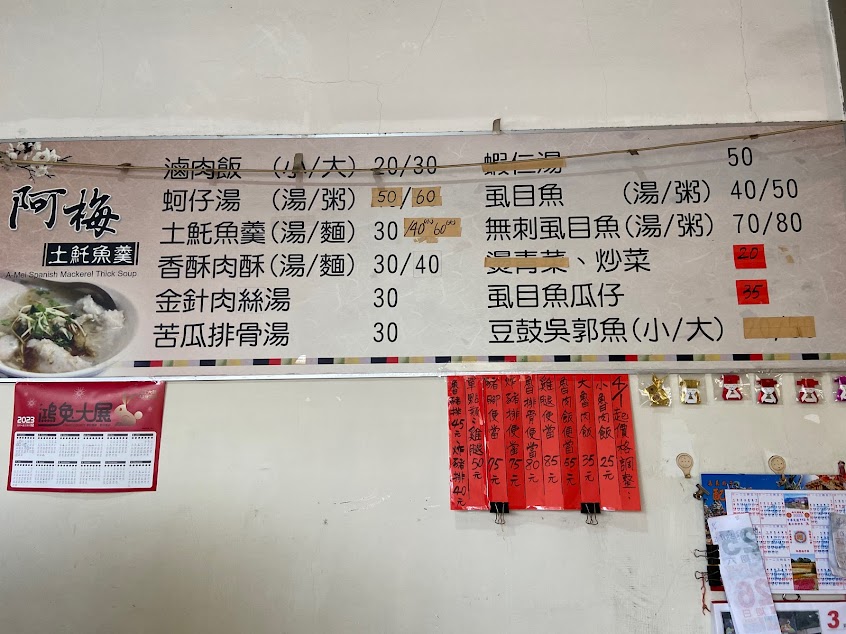 阿梅
土魠魚羹
A-Mei Spanish Mackerel Thick Soup
滷肉飯 (小/大) 20/30
蚵仔湯 (湯/粥) 50/60
土魠魚羹(湯/麵) 30/40 60
香酥肉酥(湯/麵) 30/40
金針肉絲湯 30
苦瓜排骨湯 30
蝦仁湯 50
虱目魚 (湯/粥) 40/50
無刺虱目魚(湯/粥) 70/80
燙青菜、炒菜 20
虱目魚瓜仔 35
豆鼓吳郭魚(小/大)
4/1起價格調整:
小魯肉飯 25元
大魯肉飯 35元
魯肉飯便當 55元
雞腿便當 85元
魯排骨便當 80元
炸豬排便當 75元
豬腳便當 75元
單點類:雞腿50元
魯豬排45元 炸豬排40元
2023
鴻兔大展
3